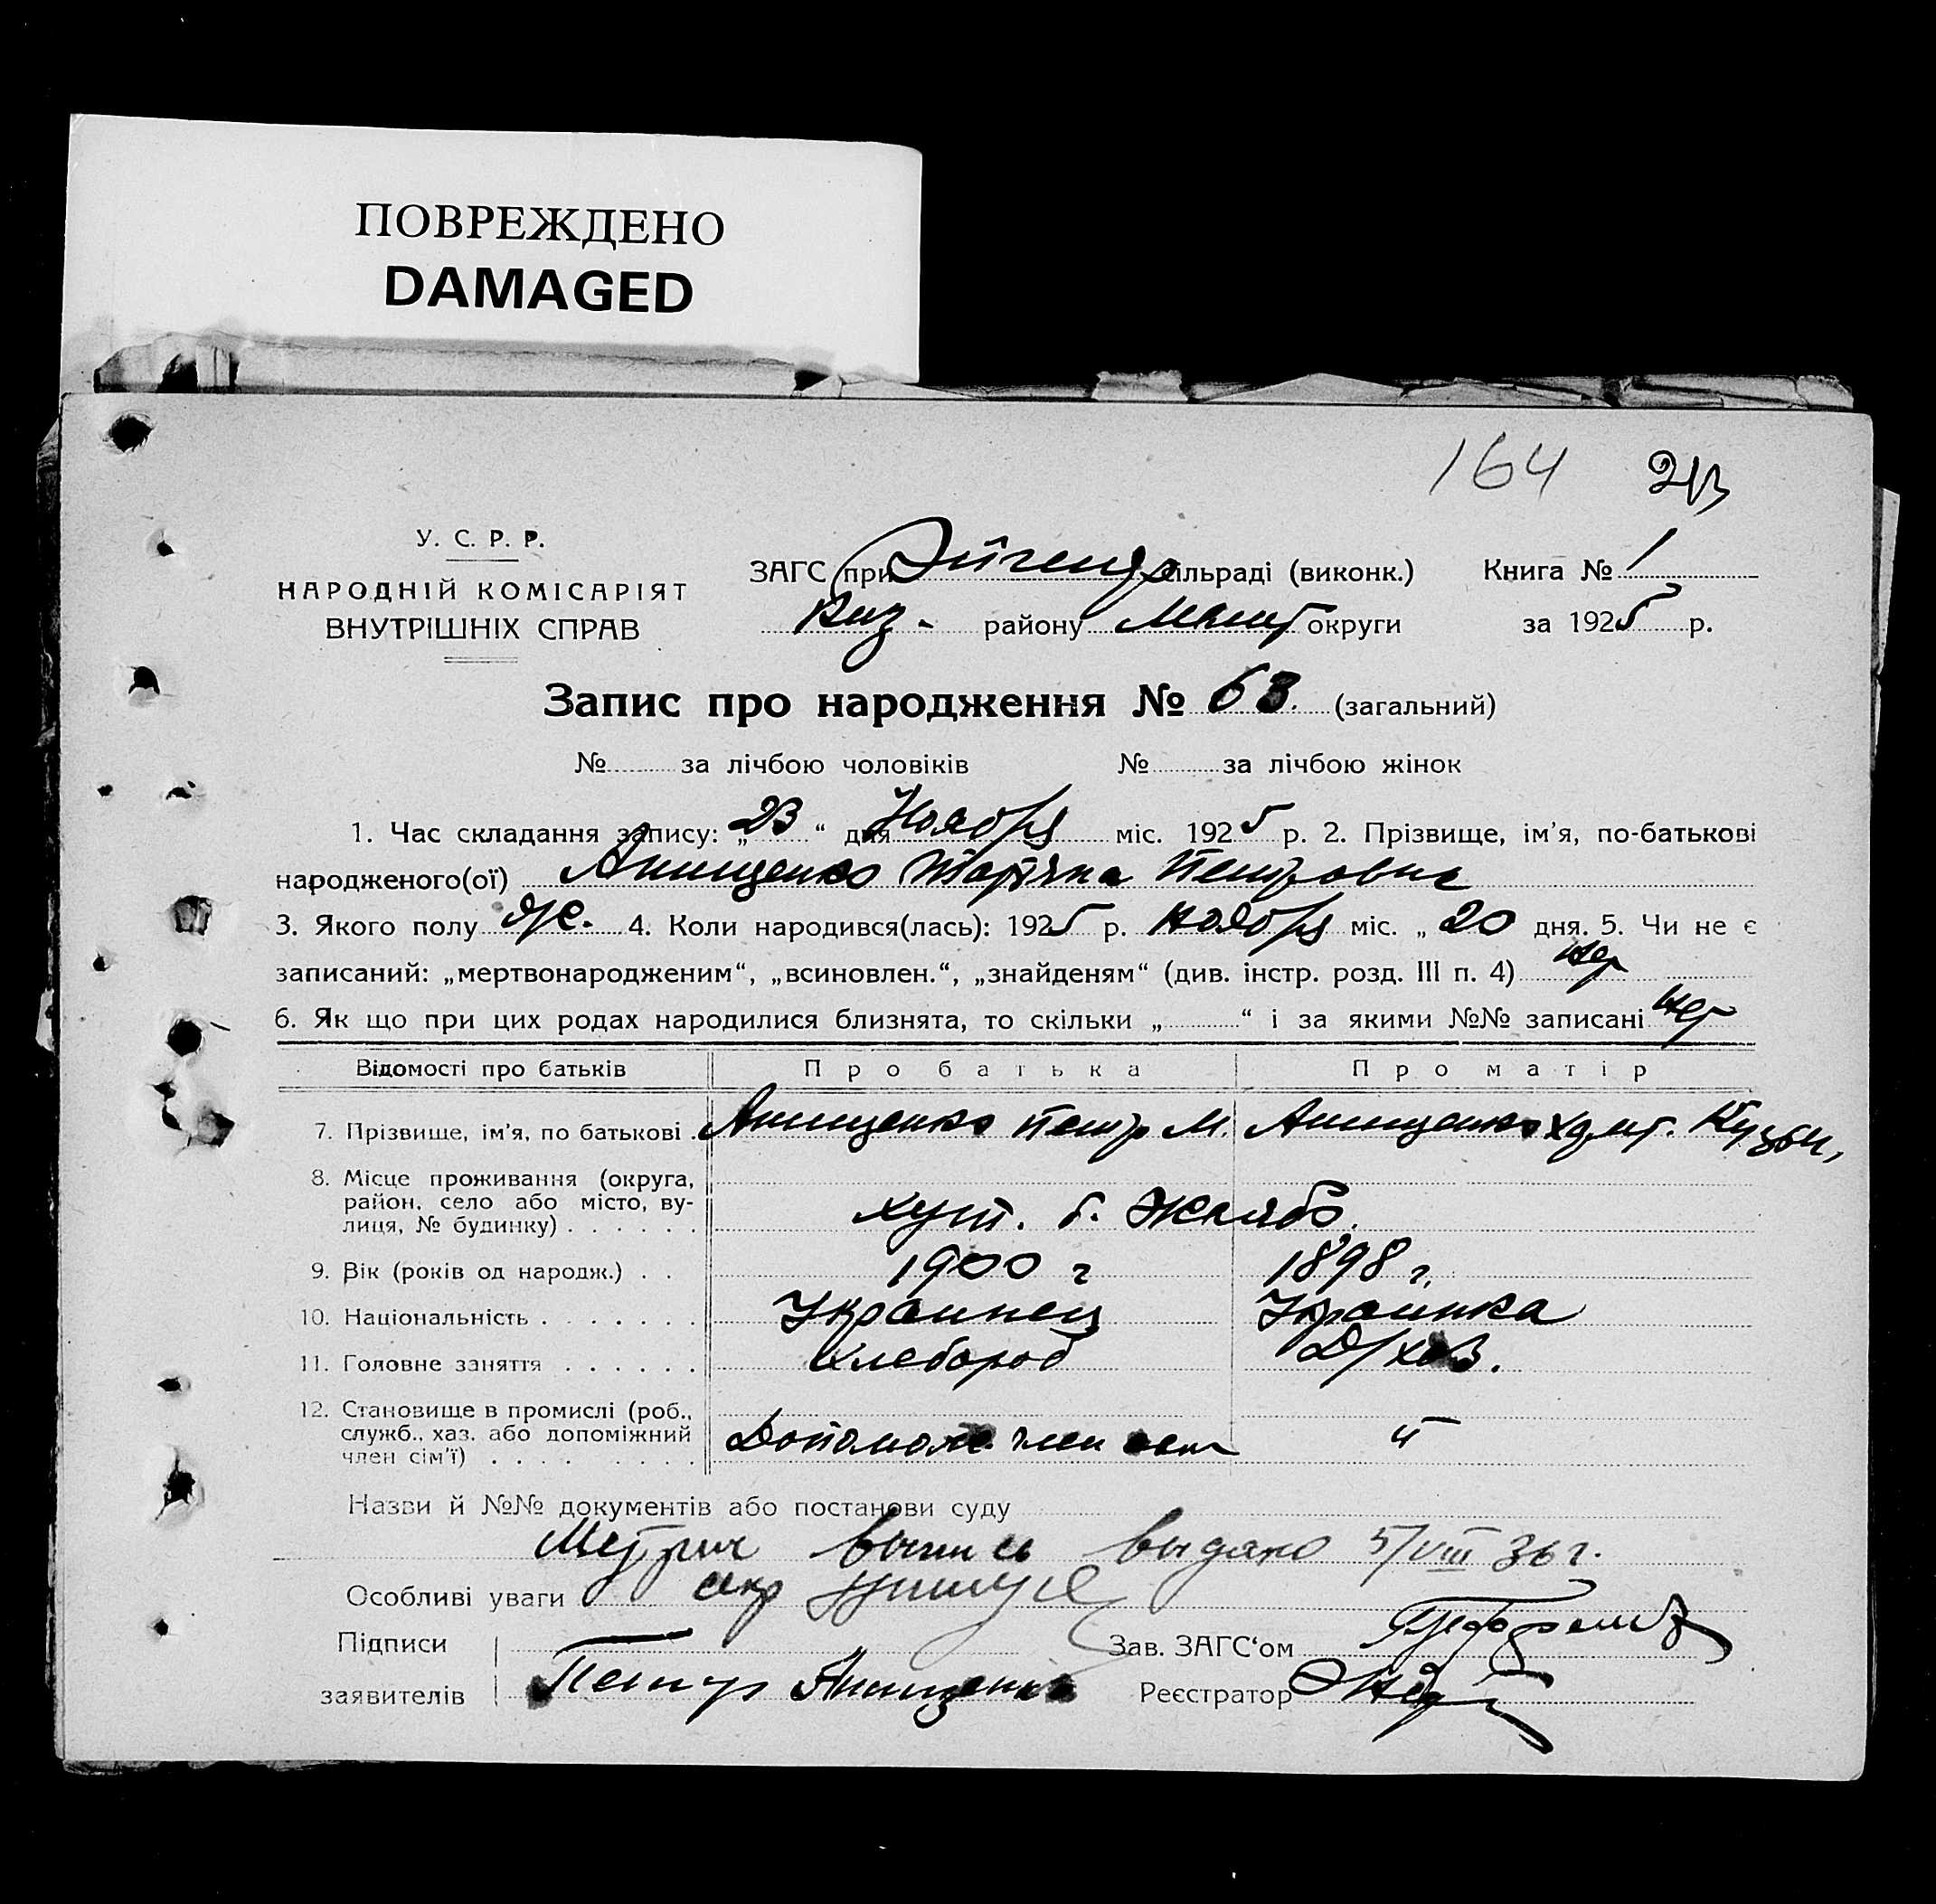 ПОВРЕЖДЕНО
DAMAGED
164 213
У. С. Р. Р.
НАРОДНІЙ КОМІСАРІЯТ
ВНУТРІШНІХ СПРАВ
ЗАГС при Эйгенф сільраді (виконк.) Книга № 1
району округи за 1925 р.
Запис про народження № 63. (загальний)
№ за лічбою чоловіків № за лічбою жінок
1. Час складання запису: „23“ дня Ноября міс. 1925 р. 2. Прізвище, ім’я, по-батькові
народженого(ої) Анищенко Татьяна Петровна
3. Якого полу ж. 4. Коли народився(лась): 1925 р. ноября міс. „20 дня. 5. Чи не є
записаний: „мертвонародженим“, „всиновлен.“, „знайденям“ (див. інстр. розд. III п. 4) нет
6. Як що при цих родах народилися близнята, то скільки „ “ і за якими №№ записані нет
Відомості про батьків Про батька Про матір
7. Прізвище, ім’я, по батькові . Анищенко Петр М. Анищенко Кузьм,
8. Місце проживання (округа,
район, село або місто, ву-
лиця, № будинку) . . . . . . хут. б. Жлябо.
9. Вік (років од народж.) . . 1900 г 1898 г.
10. Національність . . . . . . . Украинец Украинка
11. Головне заняття . . . . . . Хлебороб Д/хоз.
12. Становище в промислі (роб.,
служб., хаз. або допоміжний
член сім’ї) . . . . . . . . Допомож. член семи "
Назви й №№ документів або постанови суду
Метрич выпись выдано 5/VIII 36 г.
Особливі уваги секр
Підписи Зав. ЗАГС‘ом
заявителів Петр Анищенко Реєстратор